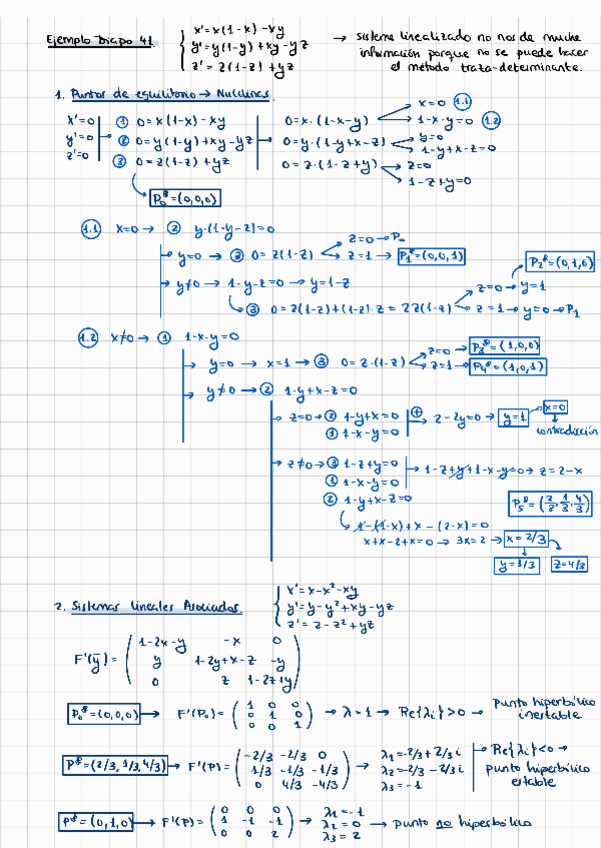 Ejemplo Diapo 41.
x' = x(1-x) - xy
y' = y(1-y) + xy - yz
z' = z(1-z) + yz
→ sistema linealizado no nos da mucha
información porque no se puede hacer
el método traza-determinante.
1. Puntos de equilibrio → Nulclinas
x'=0 ① 0 = x(1-x) - xy 0 = x·(1-x-y) x=0 1.1
1-x-y=0 1.2
y'=0 → ② 0 = y(1-y) + xy - yz 0 = y·(1-y+x-z) y=0
1-y+x-z=0
z'=0 ③ 0 = z(1-z) + yz 0 = z·(1-z+y) → z=0
1-z+y=0
P₀* = (0,0,0)
1.1 x=0 → ② y·(1-y-z)=0
→ y=0 → ③ 0 = z(1-z) z=0 → P₀
z=1 → P₁* = (0,0,1)
→ y≠0 → 1-y-z=0 → y=1-z z=0 → y=1 P₂* = (0,1,0)
③ 0 = z(1-z)+(1-z)·z = 2z(1-z) z=1 → y=0 → P₁
1.2 x≠0 → ① 1-x-y=0
→ y=0 → x=1 → ③ 0 = z·(1-z) z=0 → P₃* = (1,0,0)
z=1 → P₄* = (1,0,1)
→ y≠0 → ② 1-y+x-z=0
→ z=0 → ② 1-y+x=0 ⊕ 2-2y=0 → y=1 x=0
① 1-x-y=0 contradicción
→ z≠0 → ③ 1-z+y=0 → 1-z+y+1-x-y=0 → z=2-x
① 1-x-y=0
② 1-y+x-z=0 P₅* = (2/3, 1/3, 4/3)
1-(1-x)+x-(2-x)=0
x+x-2+x=0 → 3x=2 → x=2/3
y=1/3 z=4/3
2. Sistemas Lineales Asociados.
x' = x-x²-xy
y' = y-y²+xy-yz
z' = z-z²+yz
F'(ȳ) = ( 1-2x-y -x 0
y 1-2y+x-z -y
0 z 1-2z+y )
P₀* = (0,0,0) → F'(P₀) = ( 1 0 0
0 1 0
0 0 1 ) → λ=1 → Re{λᵢ}>0 → Punto hiperbólico
inestable
P* = (2/3, 1/3, 4/3) → F'(P) = ( -2/3 -2/3 0
1/3 -1/3 -1/3
0 4/3 -4/3 ) → λ₁=-2/3+2/3 i
λ₂=-2/3-2/3 i
λ₃=-1
→ Re{λᵢ}<0 →
punto hiperbólico
estable
P* = (0,1,0) → F'(P) = ( 0 0 0
1 -1 -1
0 0 2 ) → λ₁=-1
λ₂=0
λ₃=2
→ punto no hiperbólico